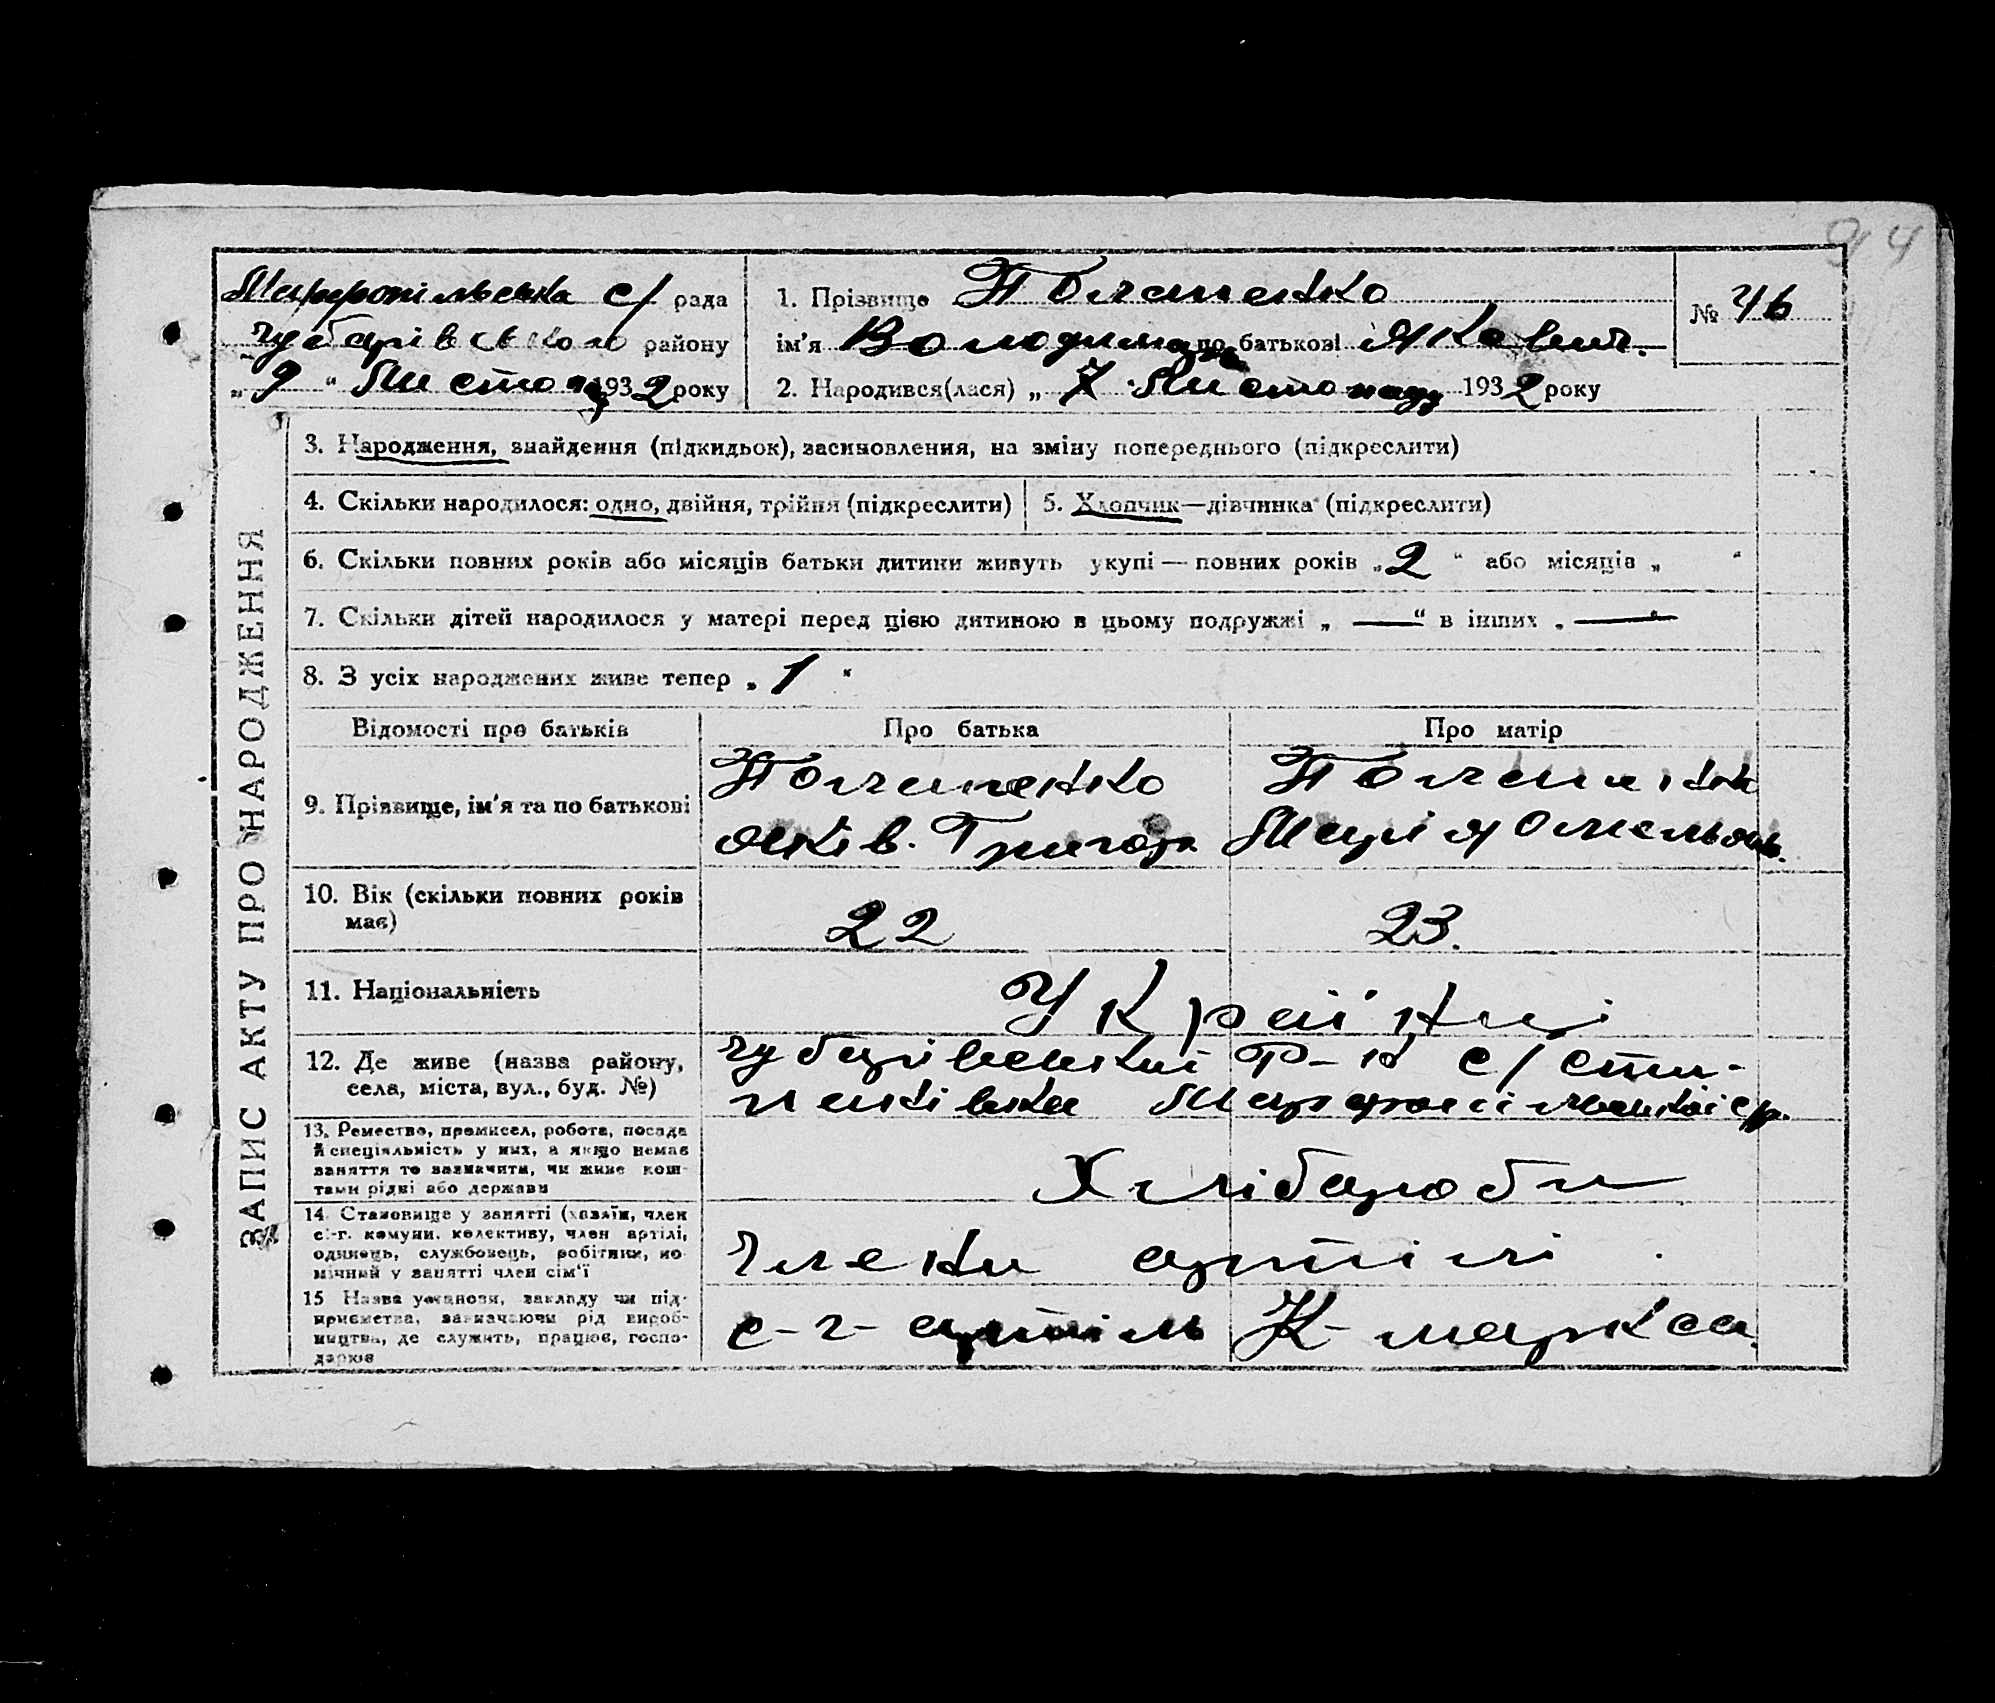 94
Марфопільська с/ рада
Чубарівського району
„ 9 “ Листопад 1932 року
1. Прізвище
ім'я Володимир по батькові Якович.
2. Народився(лася) „ 7 “ Листопаду 1932 року
№ 46
ЗАПИС АКТУ ПРО НАРОДЖЕННЯ
3. Народження, знайдення (підкидьок), засиновлення, на зміну попереднього (підкреслити)
4. Скільки народилося: одно, двійня, трійня (підкреслити)
5. Хлопчик—дівчинка (підкреслити)
6. Скільки повних років або місяців батьки дитини живуть укупі — повних років „ 2 “ або місяців „ “
7. Скільки дітей народилося у матері перед цією дитиною в цьому подружжі „ — “ в інших „ — “
8. З усіх народжених живе тепер „ 1 “
Відомості про батьків
Про батька
Про матір
9. Прізвище, ім'я та по батькові
Яків. Григор
Марія Омельян.
10. Вік (скільки повних років
має)
22
23.
11. Національність
Українці
12. Де живе (назва району,
села, міста, вул., буд. №)
Чубарівський Р-н с/
Марфопільської с/р.
13. Ремество, промисел, робота, посада
й спеціяльність у них, а якщо немає
заняття то зазначити, чи живе кош-
тами рідні або держави
Хлібароби
14. Становище у занятті (хазяїн, член
с.-г. комуни, колективу, член артілі,
одинець, службовець, робітник, по-
мічний у занятті член сім'ї
члени артілі
15 Назва установи, закладу чи під-
приємства, зазначаючи рід вироб-
ництва, де служить, працює, госпо-
дарює
с-г- артіль К- маркса.